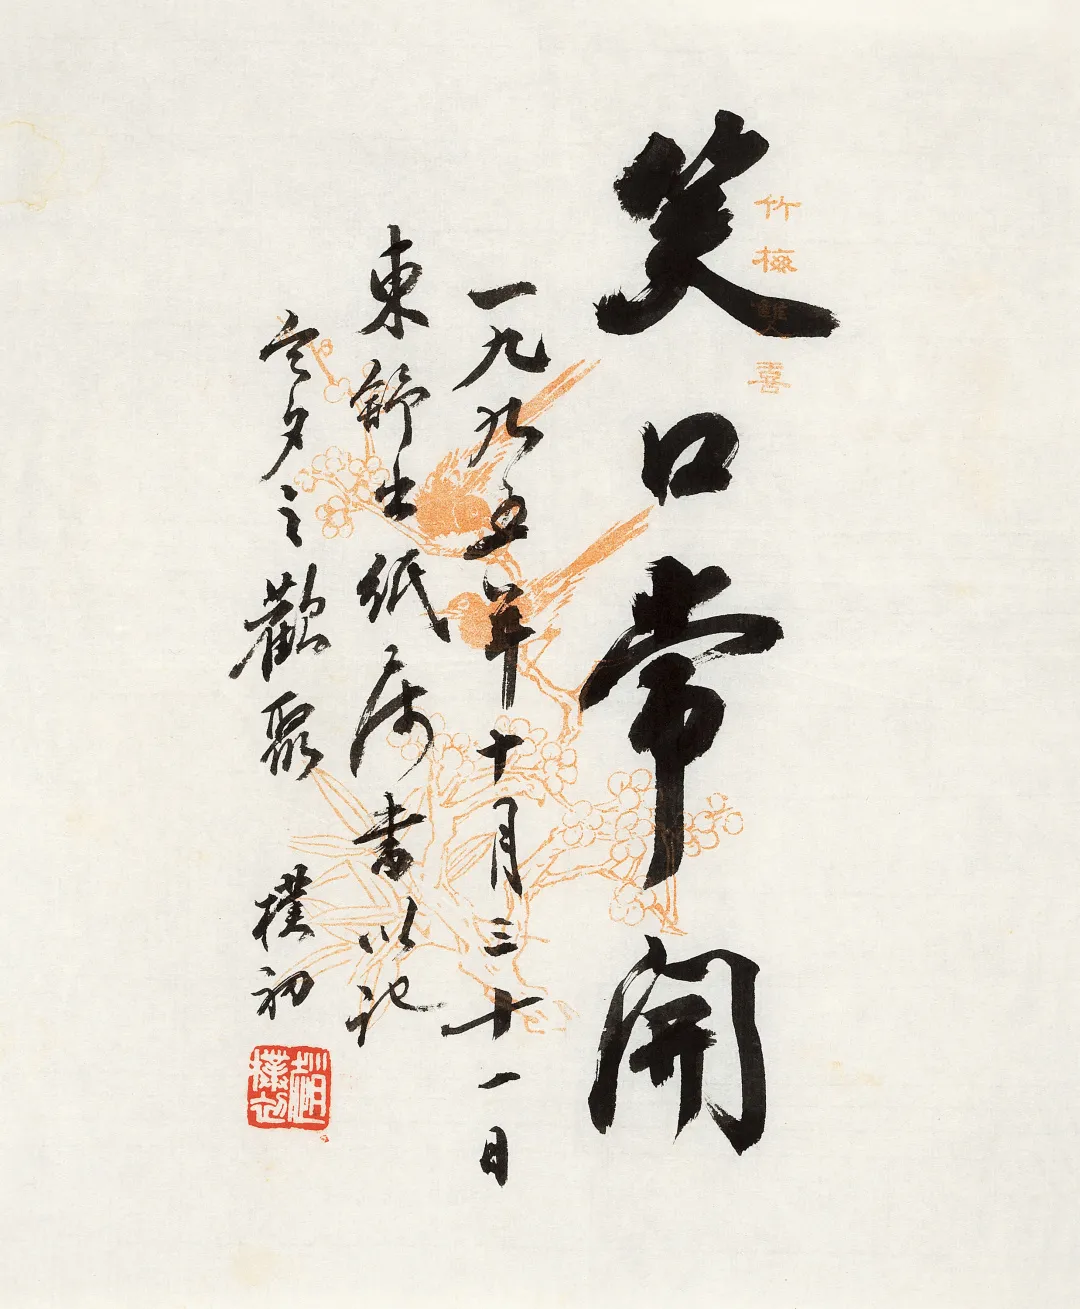 竹梅雙喜
笑口常開
一九九五年十月三十一日
東舒出紙屬書以記
今夕之歡聚
樸初
趙樸初